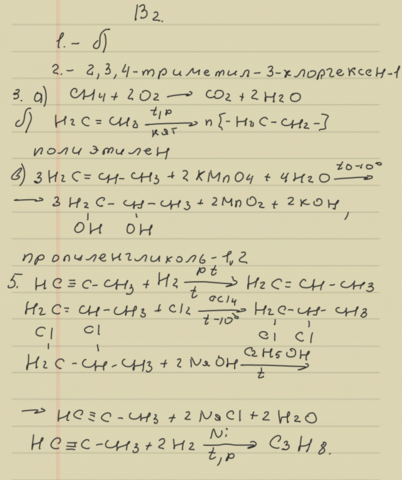 В2.
1. - б)
2. - 2,3,4-триметил-3-хлоргексен-1
3. а) CH4 + 2O2 → CO2 + 2H2O
б) H2C = CH2 t,p кат → n[-H2C-CH2-]
полиэтилен
в) 3H2C = CH-CH3 + 2KMnO4 + 4H2O t0-10° →
→ 3H2C - CH - CH3 + 2MnO2 + 2KOH,
OH OH
пропиленгликоль-1,2
5. HC≡C-CH3 + H2 pt t → H2C = CH - CH3
H2C = CH-CH3 + Cl2 CCl4 t-10° → H2C-CH-CH3
Cl Cl Cl Cl
H2C - CH - CH3 + 2NaOH C2H5OH t →
→ HC≡C-CH3 + 2NaCl + 2H2O
HC≡C-CH3 + 2H2 Ni t,p → C3H8.